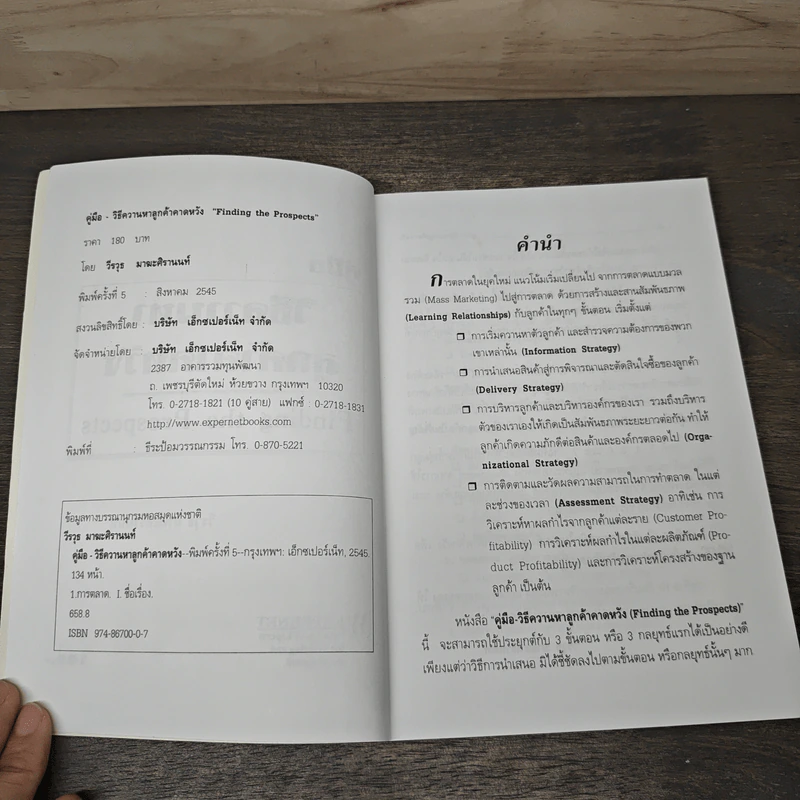 คู่มือ - วิธีควานหาลูกค้าคาดหวัง "Finding the Prospects"
ราคา 180 บาท
โดย วีรวุธ มาฆะศิรานนท์
พิมพ์ครั้งที่ 5 : สิงหาคม 2545
สงวนลิขสิทธิ์โดย : บริษัท เอ็กซเปอร์เน็ท จำกัด
จัดจำหน่ายโดย : บริษัท เอ็กซเปอร์เน็ท จำกัด
2387 อาคารรวมทุนพัฒนา
ถ. เพชรบุรีตัดใหม่ ห้วยขวาง กรุงเทพฯ 10320
โทร. 0-2718-1821 (10 คู่สาย) แฟกซ์ : 0-2718-1831
http://www.expernetbooks.com
พิมพ์ที่ : ธีระป้อมวรรณกรรม โทร. 0-870-5221
ข้อมูลทางบรรณานุกรมหอสมุดแห่งชาติ
วีรวุธ มาฆะศิรานนท์
คู่มือ - วิธีควานหาลูกค้าคาดหวัง--พิมพ์ครั้งที่ 5--กรุงเทพฯ: เอ็กซเปอร์เน็ท, 2545.
134 หน้า.
1.การตลาด. I. ชื่อเรื่อง.
658.8
ISBN 974-86700-0-7
คำนำ
การตลาดในยุคใหม่ แนวโน้มเริ่มเปลี่ยนไป จากการตลาดแบบมวล
รวม (Mass Marketing) ไปสู่การตลาด ด้วยการสร้างและสานสัมพันธภาพ
(Learning Relationships) กับลูกค้าในทุกๆ ขั้นตอน เริ่มตั้งแต่
❒ การเริ่มควานหาตัวลูกค้า และสำรวจความต้องการของพวก
เขาเหล่านั้น (Information Strategy)
❒ การนำเสนอสินค้าสู่การพิจารณาและตัดสินใจซื้อของลูกค้า
(Delivery Strategy)
❒ การบริหารลูกค้าและบริหารองค์กรของเรา รวมถึงบริหาร
ตัวของเราเองให้เกิดเป็นสัมพันธภาพระยะยาวต่อกัน ทำให้
ลูกค้าเกิดความภักดีต่อสินค้าและองค์กรตลอดไป (Orga-
nizational Strategy)
❒ การติดตามและวัดผลความสามารถในการทำตลาด ในแต่
ละช่วงของเวลา (Assessment Strategy) อาทิเช่น การ
วิเคราะห์หาผลกำไรจากลูกค้าแต่ละราย (Customer Pro-
fitability) การวิเคราะห์ผลกำไรในแต่ละผลิตภัณฑ์ (Pro-
duct Profitability) และการวิเคราะห์โครงสร้างของฐาน
ลูกค้า เป็นต้น
หนังสือ "คู่มือ-วิธีควานหาลูกค้าคาดหวัง (Finding the Prospects)"
นี้ จะสามารถใช้ประยุกต์กับ 3 ขั้นตอน หรือ 3 กลยุทธ์แรกได้เป็นอย่างดี
เพียงแต่ว่าวิธีการนำเสนอ มิได้ชี้ชัดลงไปตามขั้นตอน หรือกลยุทธ์นั้นๆ มาก